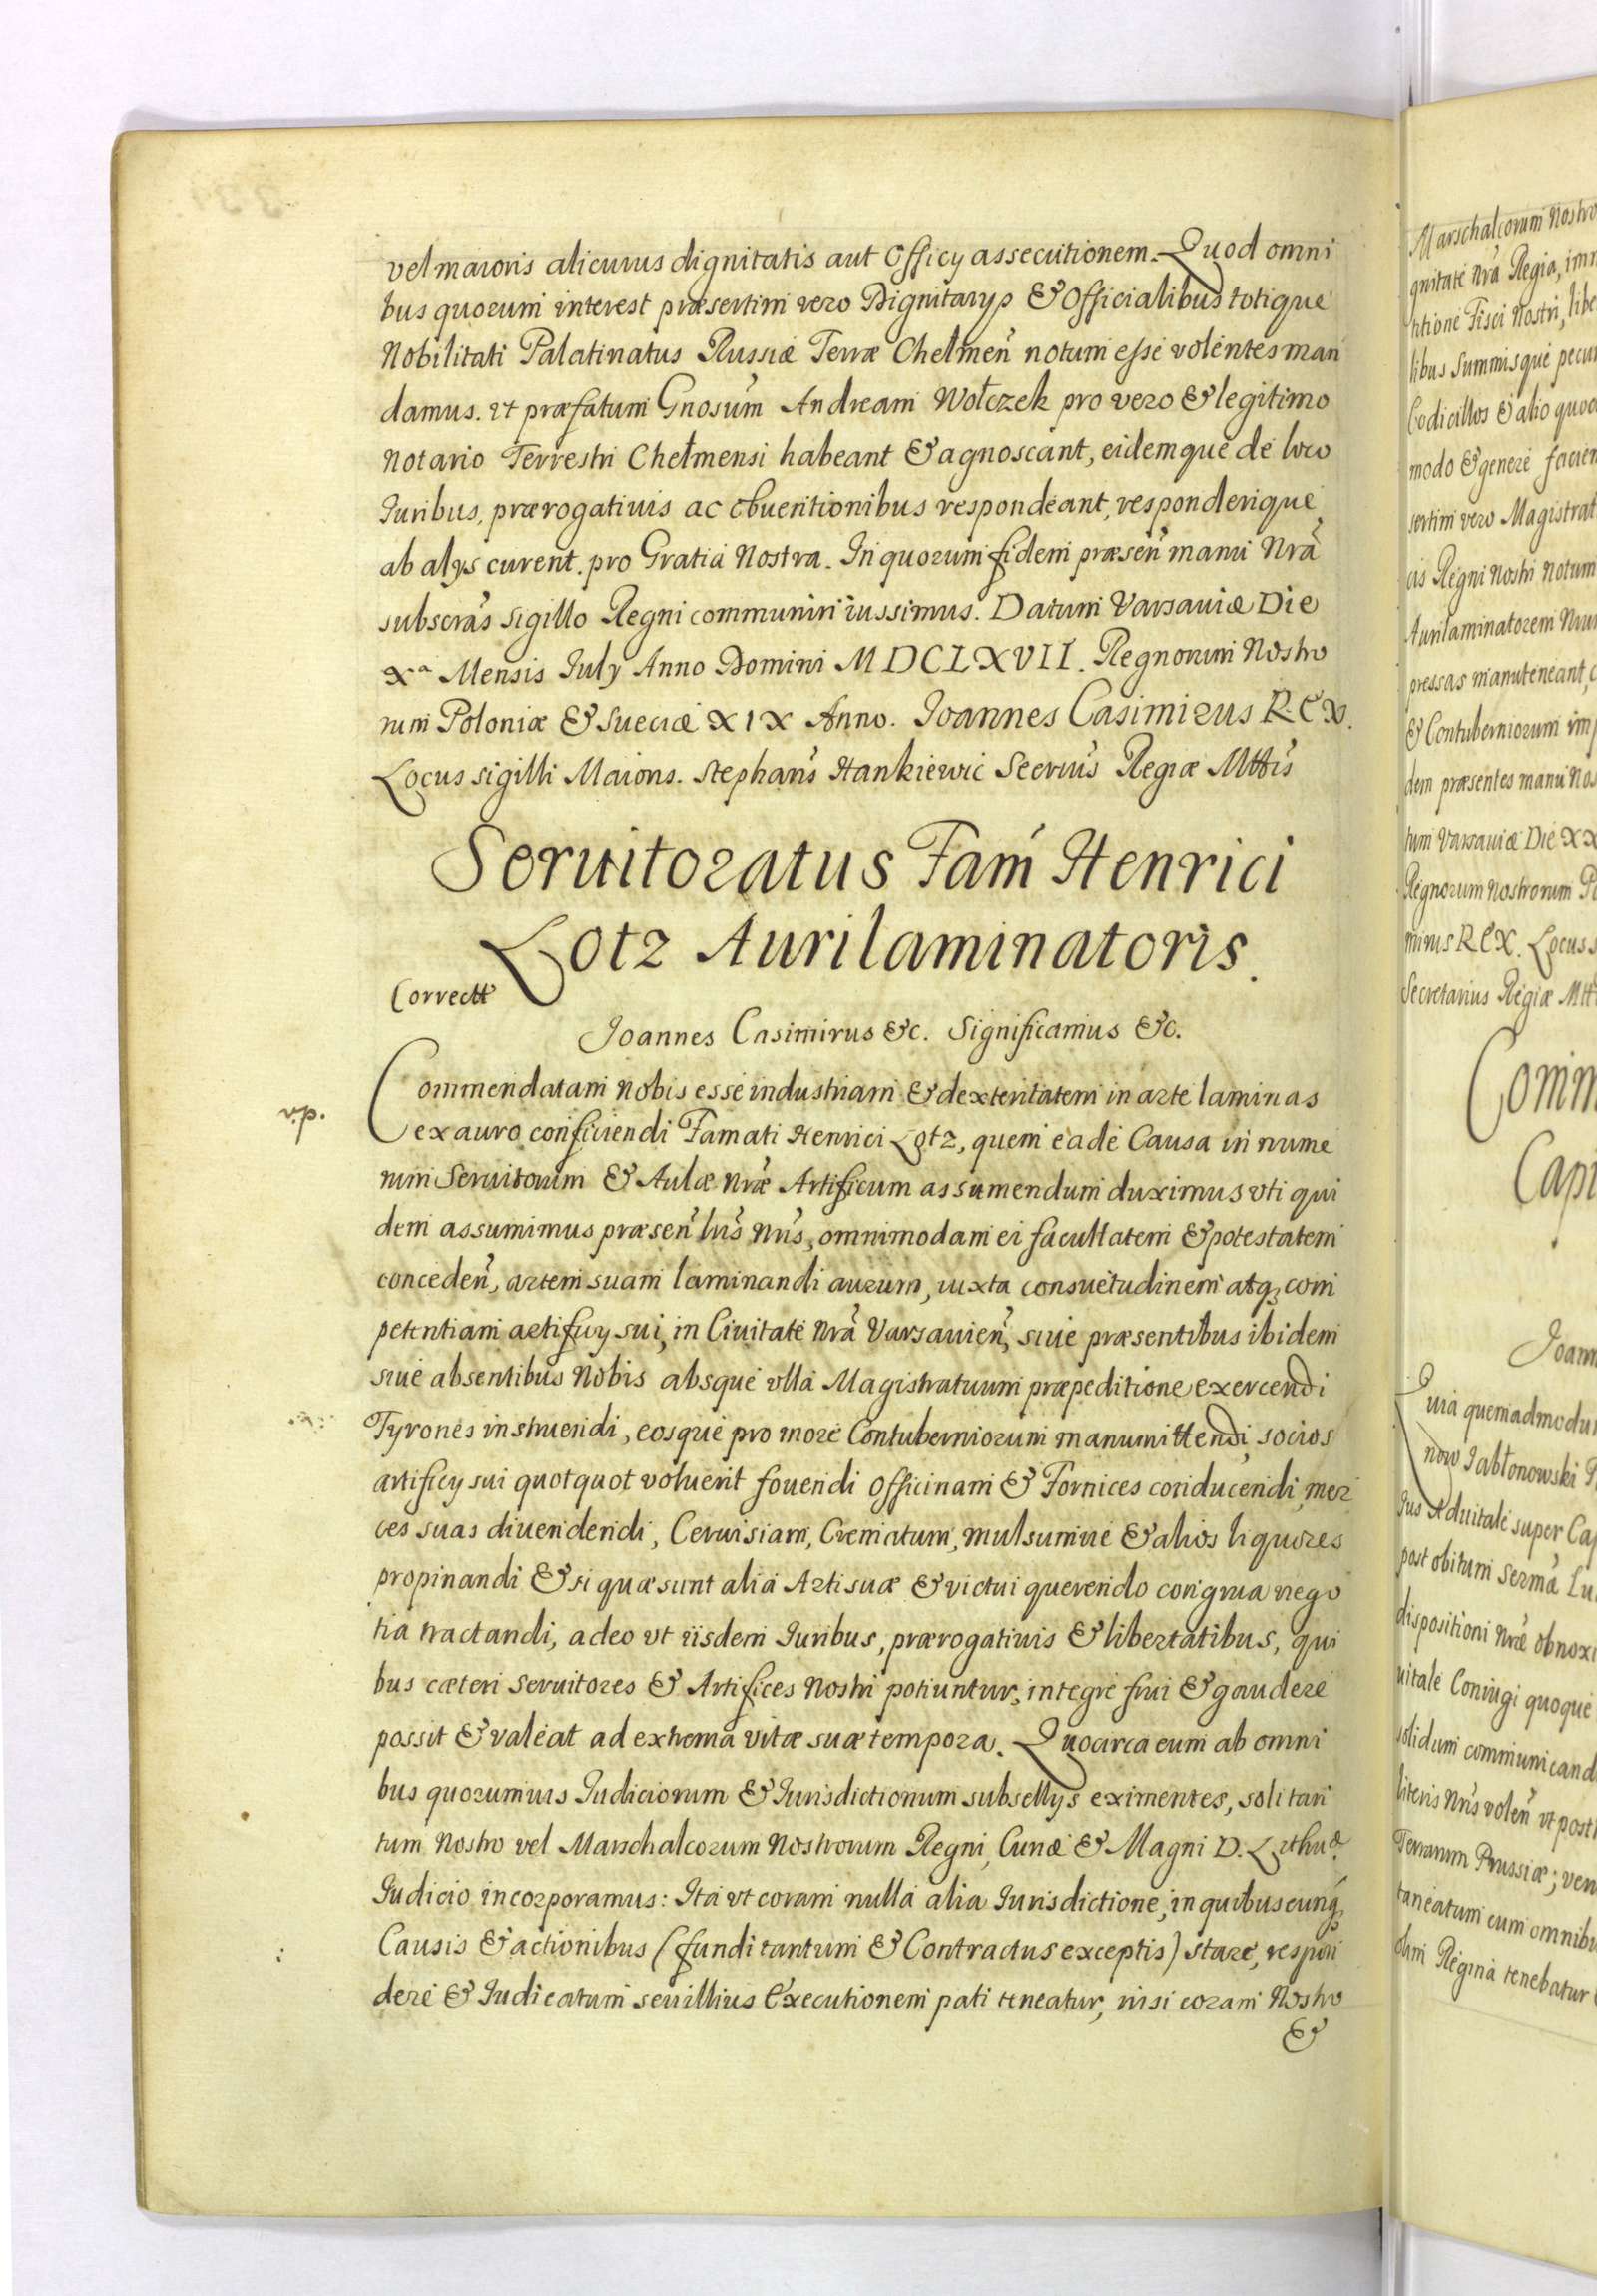 vel maioris alicuius dignitatis aut Officy assecutionem. Quod omni
bus quorum interest præsertim vero Dignitarys & Officialibus totique
Nobilitati Palatinatus Russiæ Terræ Chelmeñ notum esse volentes man
damus. vt præfatum Gnosum Andream Wołczek pro vero & legitimo
Notario Terrestri Chełmensi habeant & agnoscant, eidemque de loco
Iuribus, prærogatiuis ac obuentionibus respondeant, responderique
ab alys curent. pro Gratia Nostra. In quorum fidem præseñ manu Nrã
subscras sigillo Regni communiri iussimus. Datum Varsauiæ Die
Xa Mensis July Anno Domini MDCLXVII. Regnorum Nostro
rum Poloniæ & Sueciæ XIX Anno. Ioannes Casimirus REX.
Locus sigilli Maioris. Stephans Hankiewic Secrius Regiæ Mttis
Seruitoratus Fam Henrici
Lotz Aurilaminatoris.
Correctt
Ioannes Casimirus &c. Significamus &c.
Commendatam Nobis esse industriam & dexteritatem in arte laminas
v.p.
ex auro conficiendi Famati Henrici Lotz, quem eade Causa in nume
rum Seruitorum & Aulæ Nræ Artificum assumendum duximus vti qui
dem assumimus præseñ lris Nris, omnimodam ei facultatem & potestatem
concedeñ, artem suam laminandi aurum, iuxta consuetudinem atq3 com
petentiam artificy sui, in Ciuitate Nrã Varsauieñ, siue præsentibus ibidem
siue absentibus Nobis absque vlla Magistratuum præpeditione exercendi
Tyrones instruendi, eosque pro more Contuberniorum manumittendi socios
artificy sui quotquot voluerit fouendi Officinam & Fornices conducendi, mer
ces suas diuendendi, Ceruisiam, Crematum, mulsumue & alios liquores
propinandi & si quæ sunt alia Arti suæ & victui querendo congrua nego
tia tractandi, adeo vt iisdem Iuribus, prærogatiuis & libertatibus, qui
bus cæteri Seruitores & Artifices Nostri potiuntur, integre frui & gaudere
possit & valeat ad extrema vitæ suæ tempora. Quocirca eum ab omni
bus quorumuis Iudiciorum & Iurisdictionum subsellys eximentes, soli tan
tum Nostro vel Marschalcorum Nostrorum Regni, Curiæ & Magni D. Lithuæ
Iudicio incorporamus: Ita vt coram nulla alia Iurisdictione, in quibuscunq3
Causis & actionibus (fundi tantum & Contractus exceptis) stare, respon
dere & Iudicatum seu illius Executionem pati teneatur, nisi coram Nostro
&
Marschalcorum Nostro
gnitate Nrã Regia, imm
titione Fisci Nostri, libe
libus Summisque pecun
Codicillos & alio quoc
modo & genere facien
sertim vero Magistrat
cis Regni Nostri Notum
Aurilaminatorem
pressas manuteneant, c
& Contuberniorum imp
dem præsentes manu Nos
tum Varsauiæ Die XX
Regnorum Nostrorum Po
mirus REX. Locus s
Secretarius Regiæ Mtt
Comm
Capi
Ioann
Quia quemadmodum
now Jabłonowski P
Ius Aduitale super Cap
post obitum Serma Lu
dispositioni Nræ obnoxi
uitale Coniugi quoque
solidum communicand
literis Nris voleñ vt post
Terrarum Prussiæ; ven
taneatum cum omnibu
olim Regina tenebatur